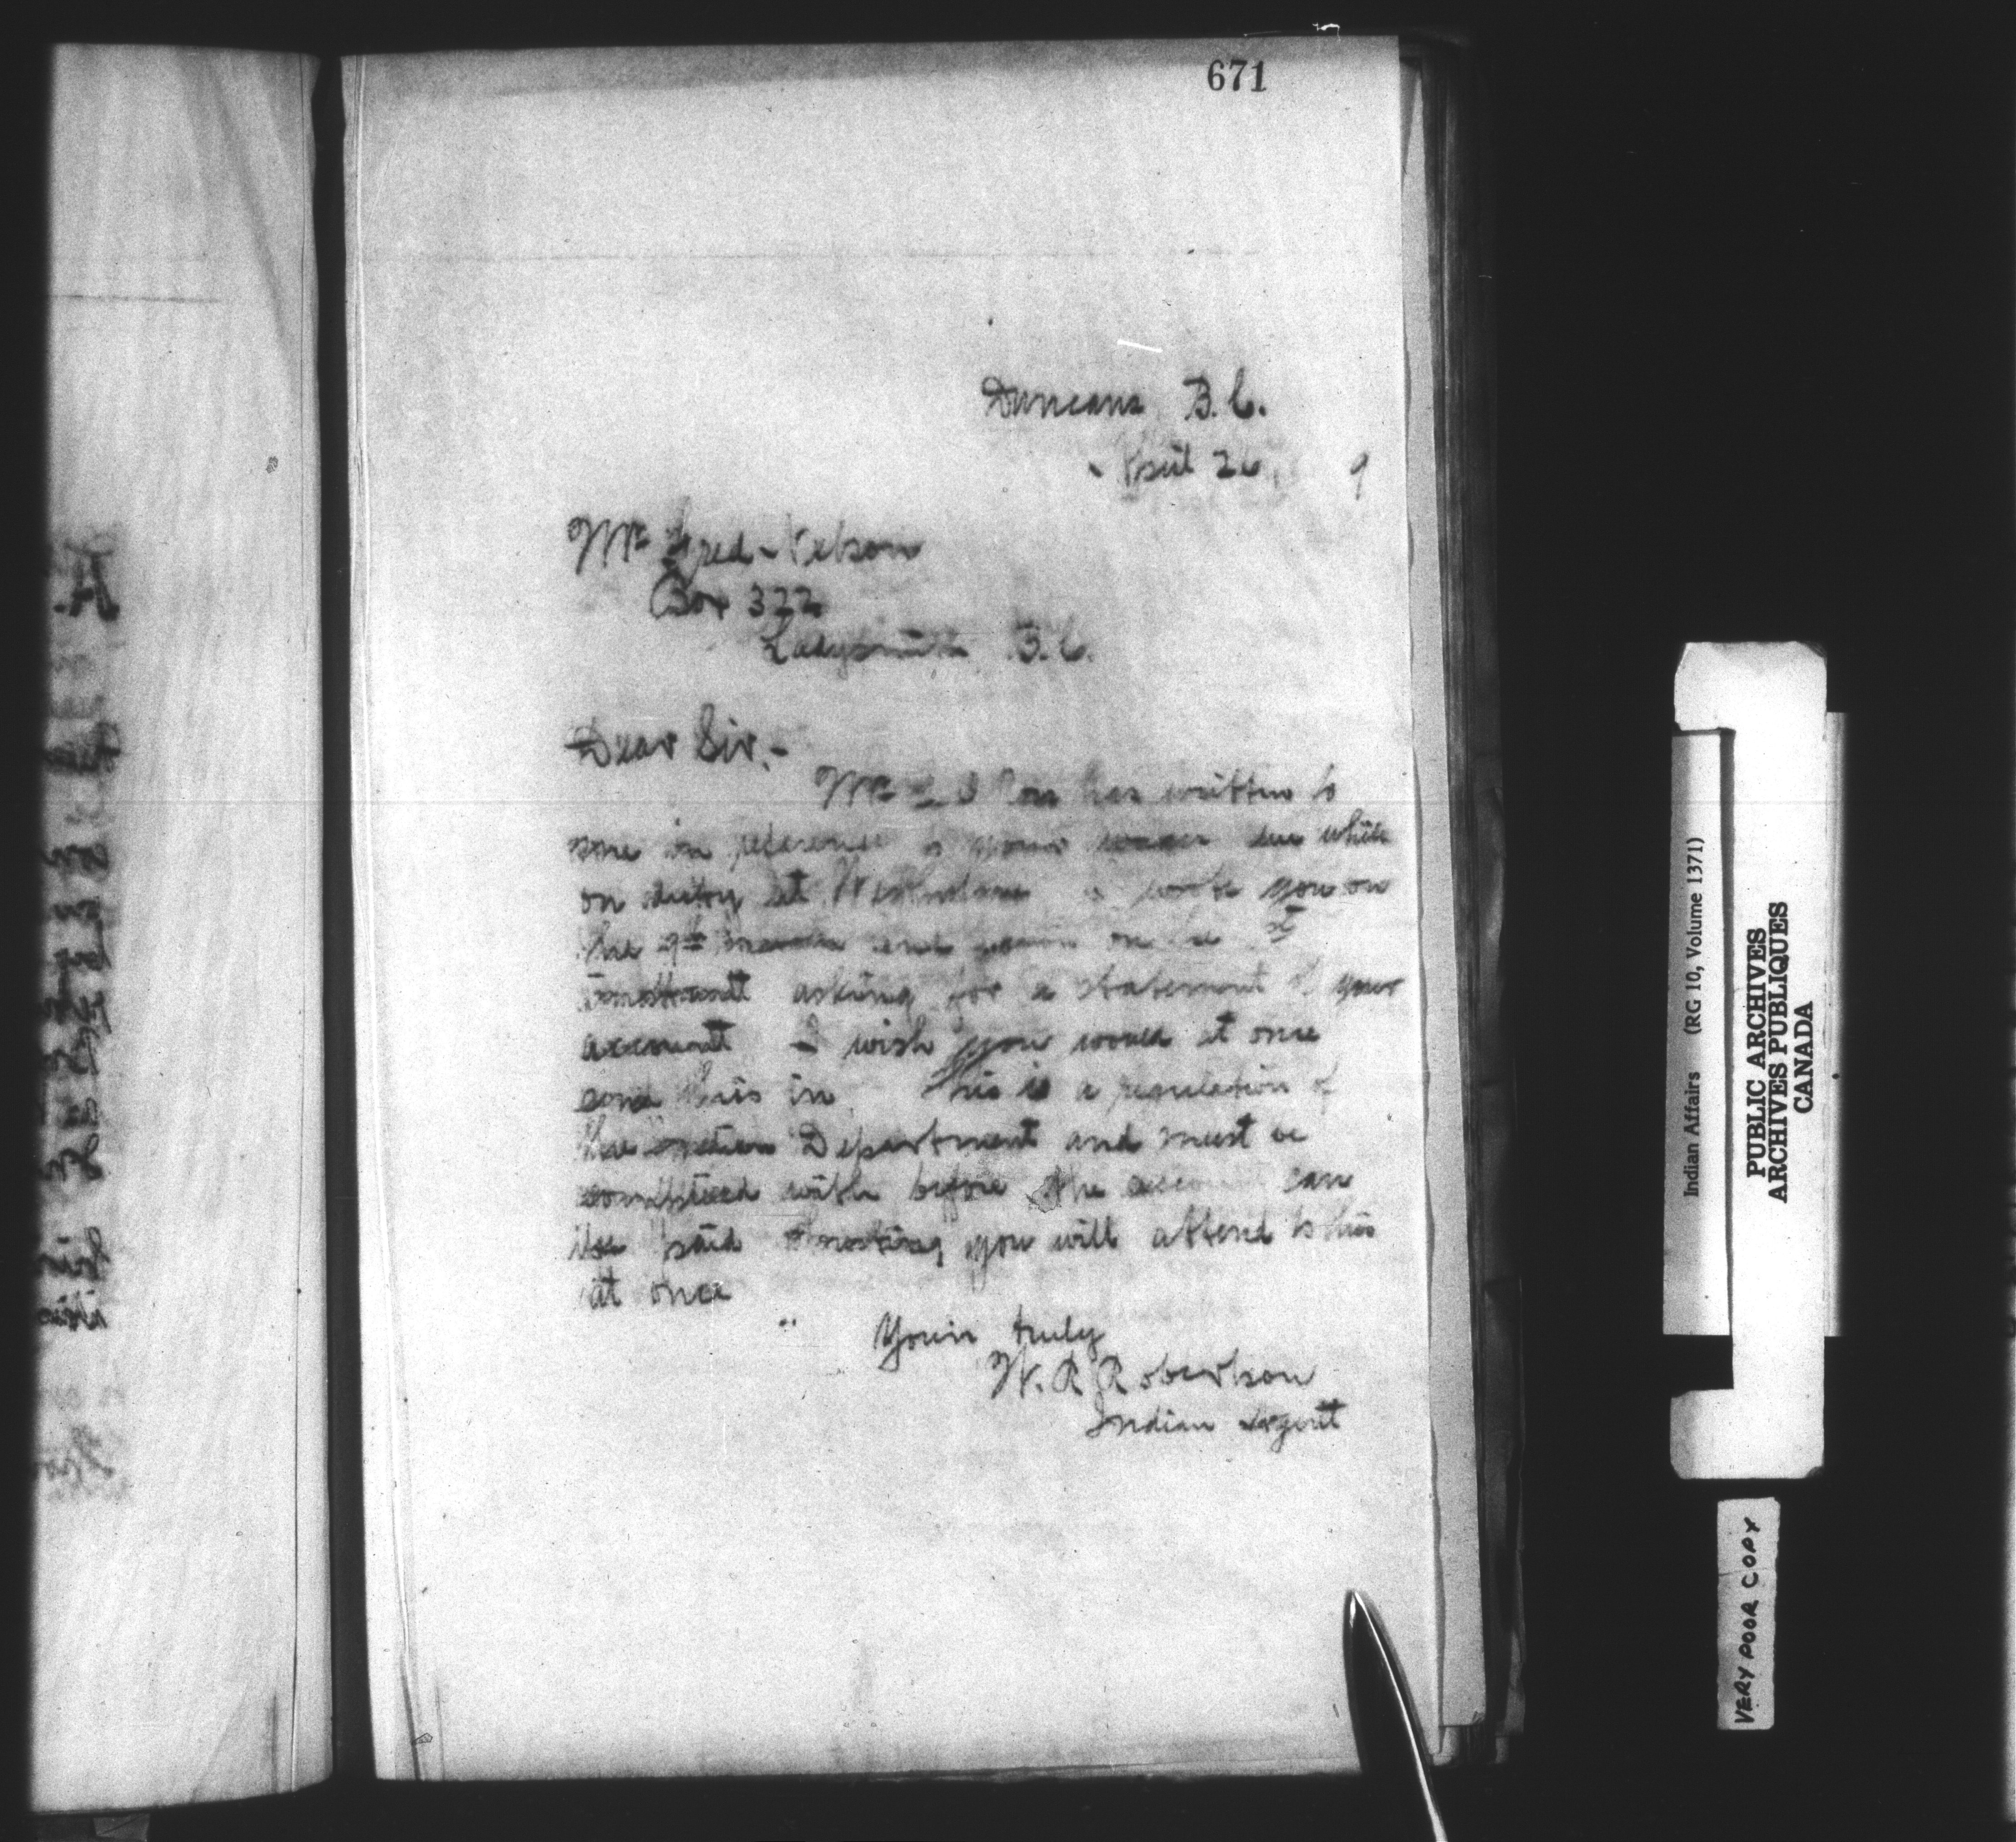 671
Duncans B.C.
April 26, 9
Mr Fred Nelson
Box 322
Ladysmith B.C.
Dear Sir,-
Mr has written to
me in reference to your wages due while
on duty at I wrote you on
the 9th and again on the
instant asking for a statement of your
account I wish you would at once
send this in. This is a regulation of
the Department and must be
complied with before the account can
be paid Trusting you will attend to this
at once
Yours truly
W. R. Robertson
Indian Agent
Indian Affairs (RG 10, Volume 1371)
PUBLIC ARCHIVES
ARCHIVES PUBLIQUES
CANADA
VERY POOR COPY